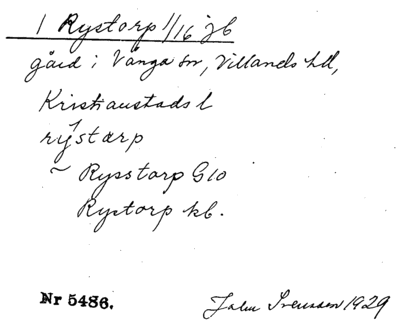 1 Rystorp 1/16 jb
gård i Vånga sn, Villands hd,
Kristianstads l
rystɑrp
~ Rysstorp G10
Rystorp kb.
Nr 5486.
John Svensson 1929